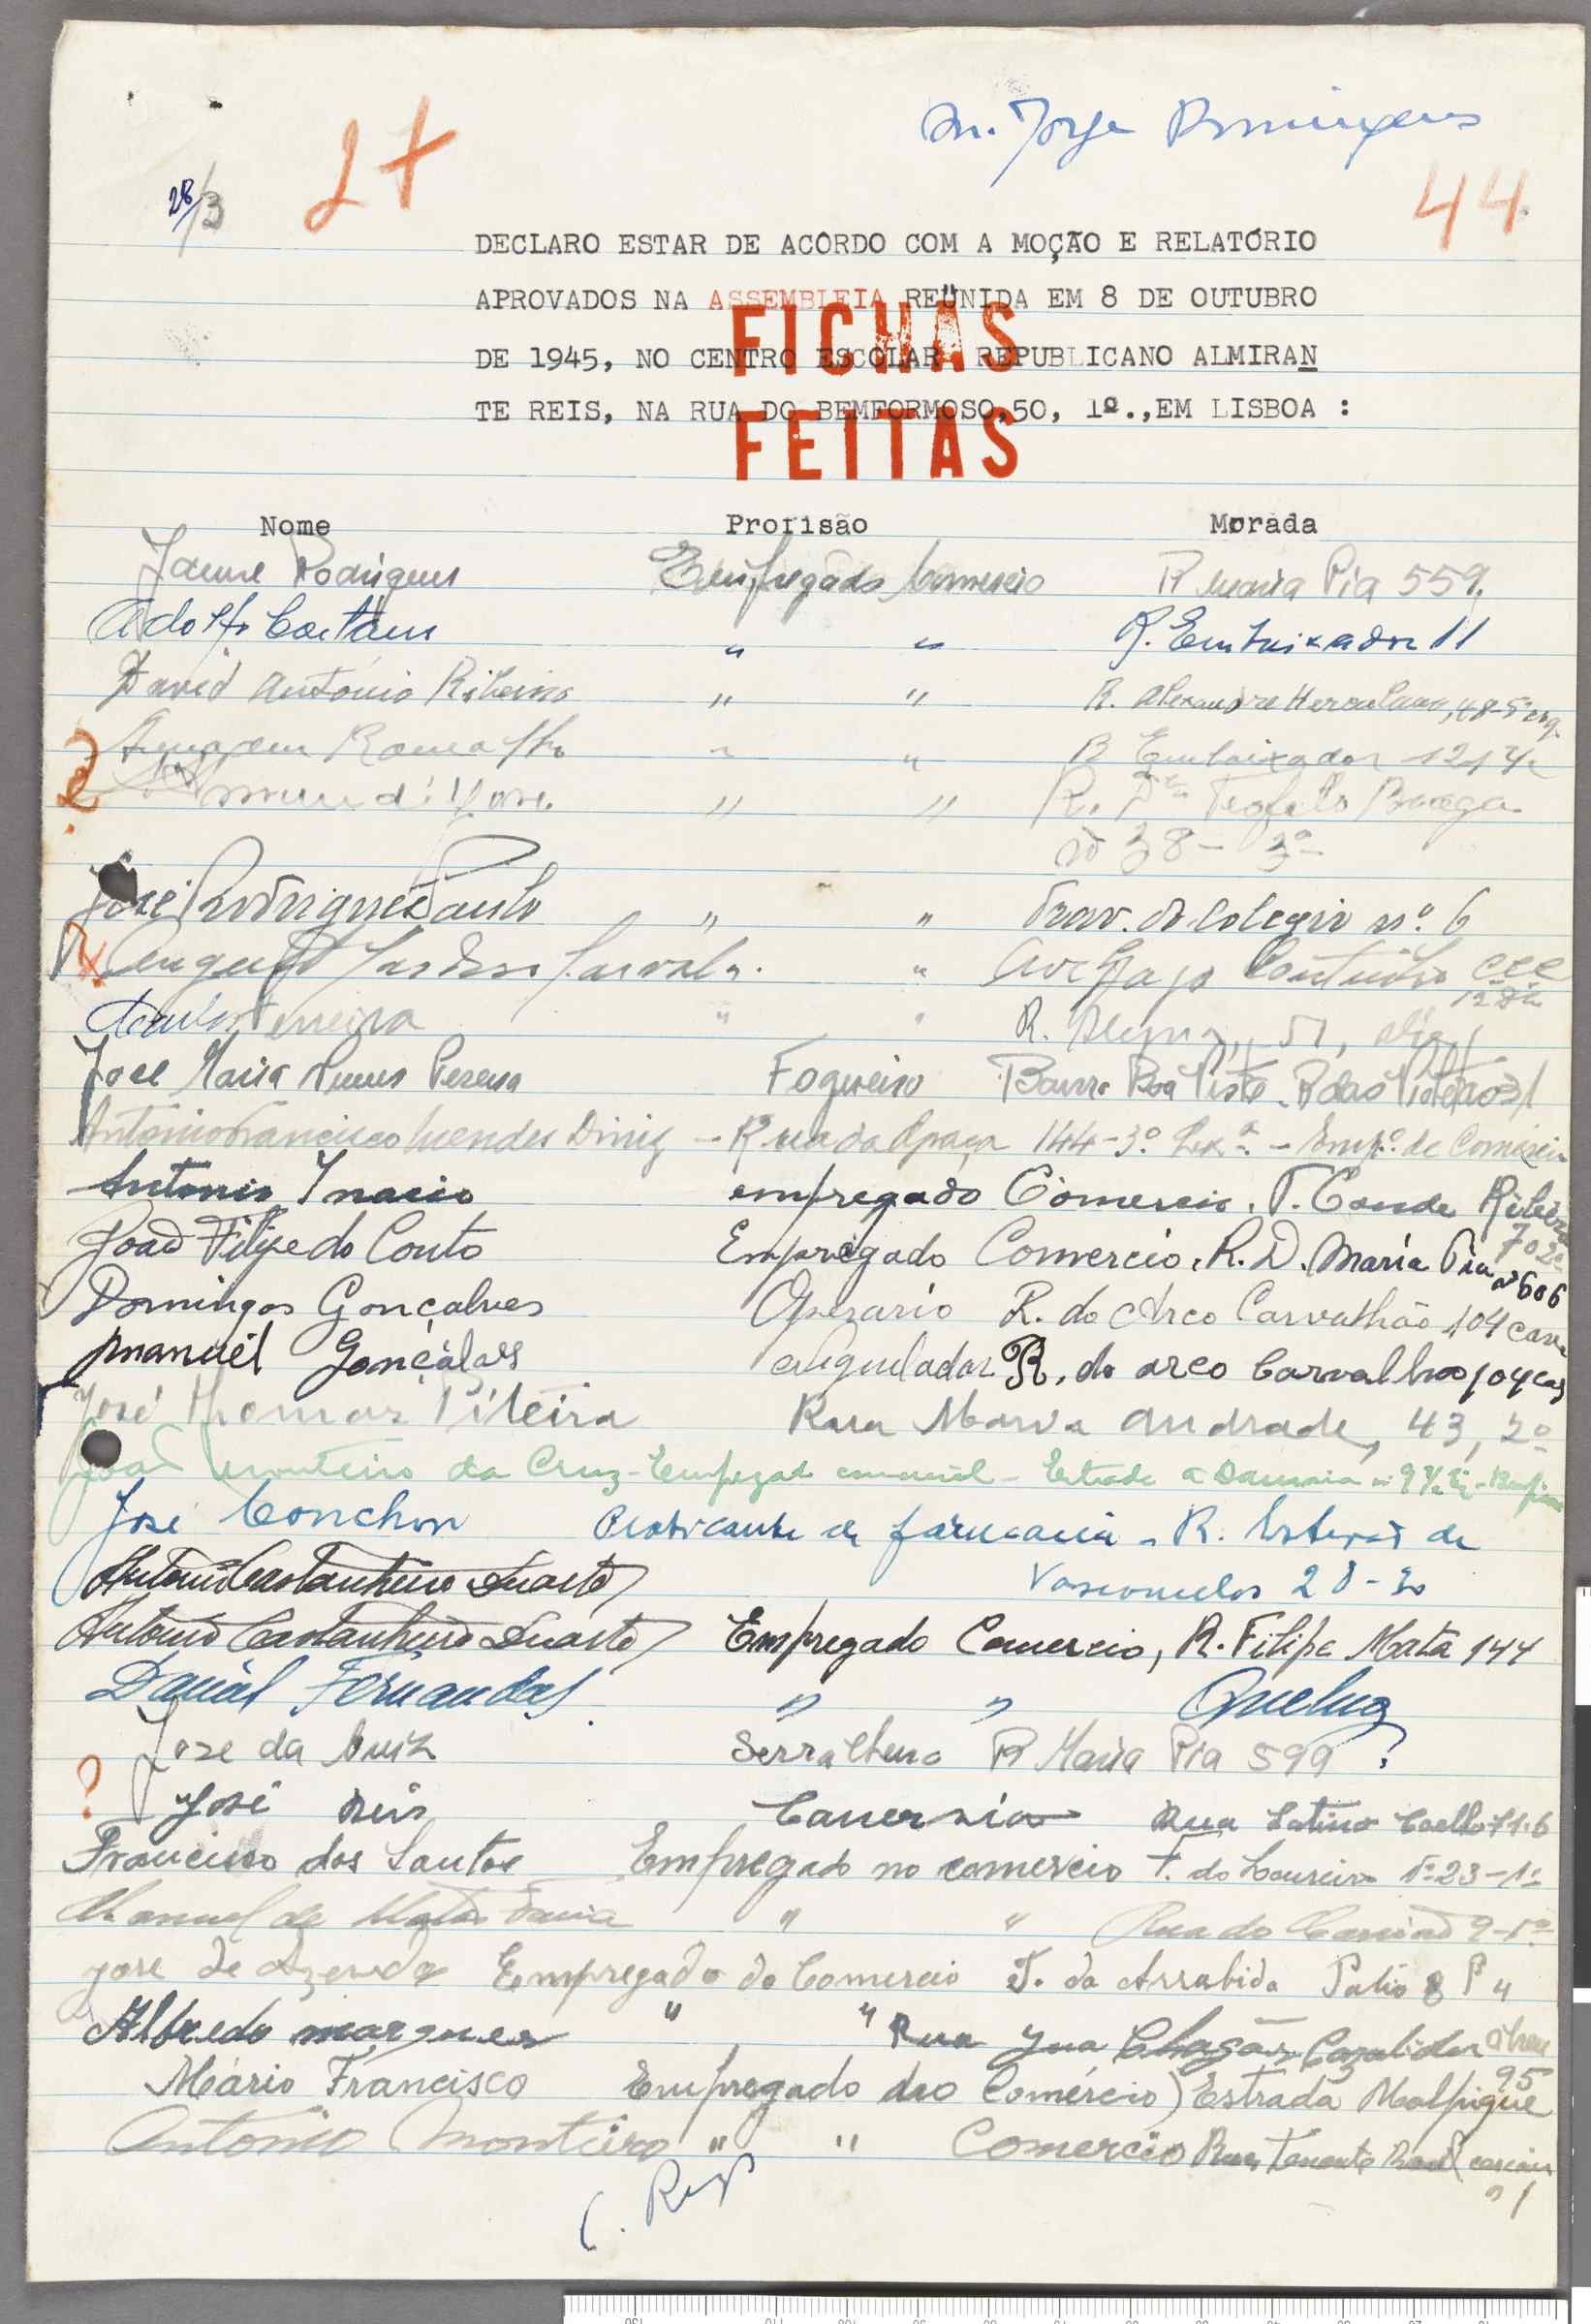 M. Jorge Domingues
28/3
27
44
DECLARO ESTAR DE ACÔRDO COM A MOÇÃO E RELATÓRIO
APROVADOS NA ASSEMBLEIA REÜNIDA EM 8 DE OUTUBRO
DE 1945, NO CENTRO ESCOLAR REPUBLICANO ALMIRAN
TE REIS, NA RUA DO BEMFORMOSO,50, 1º.,EM LISBOA :
FICHAS
FEITAS
Nome Profisão Morada
Jaime Rodrigues Empregado Comercio R Maria Pia 559
Adolfo Caetano " " R. Embaixador 11
David António Ribeiro " " R. Alexandre Herculano, 48-5º esq.
? Ramalho " " R Embaixador 121
" " R. Teofilo Braga
nº 38- 3º
José Rodrigues Paulo " " Trav. do Colegio nº. 6
Augusto Carvalho. " Gago Coutinho
Ferreira " " R. 51,
Jose Maria Nunes Pereira Fogueiro Bairro Boa Vista
Antonio Francisco Mendes Diniz - Rua da Graça 144-3º Lxª. - Empº. de Comércio
Antonio Inacio empregado Comercio. T. Conde Ribeira
70 2º
João Filipe do Couto Empregado Comercio. R. D. Maria Pia nº 606
Domingos Gonçalves Operario R. do Arco Carvalhão 104 cave
Manuel Gonçalves R. do arco Carvalhão 104 cas
José Piteira Rua Maria Andrade, 43, 2º
João Monteiro da Cruz - Empregado comercial - Estrada a Damaia
José Conchon Praticante de farmacia - R. Esteves de
Vasconcelos 28-
António Castanheira Duarte
António Castanheira Duarte Empregado Comercio, R. Filipe Mata 144
Daniel Fernandes " " Queluz
Jose da Cruz Serralheiro R Maria Pia 599
? José Reis Comercio Rua Latino Coelho 71-6
Francisco dos Santos Empregado no comercio T. do Loureiro Nº 23-1º
Manuel de Matos Faria " " Rua do 9-1º
Jose de Azevedo Empregado do Comercio T. da Arrabida Patio 8 P 4
Alfredo marques " " Rua
95
Mário Francisco Empregado do Comércio Estrada Malpique
Antonio Monteiro " " Comercio Rua Tenente Raul Cascais
nº 1